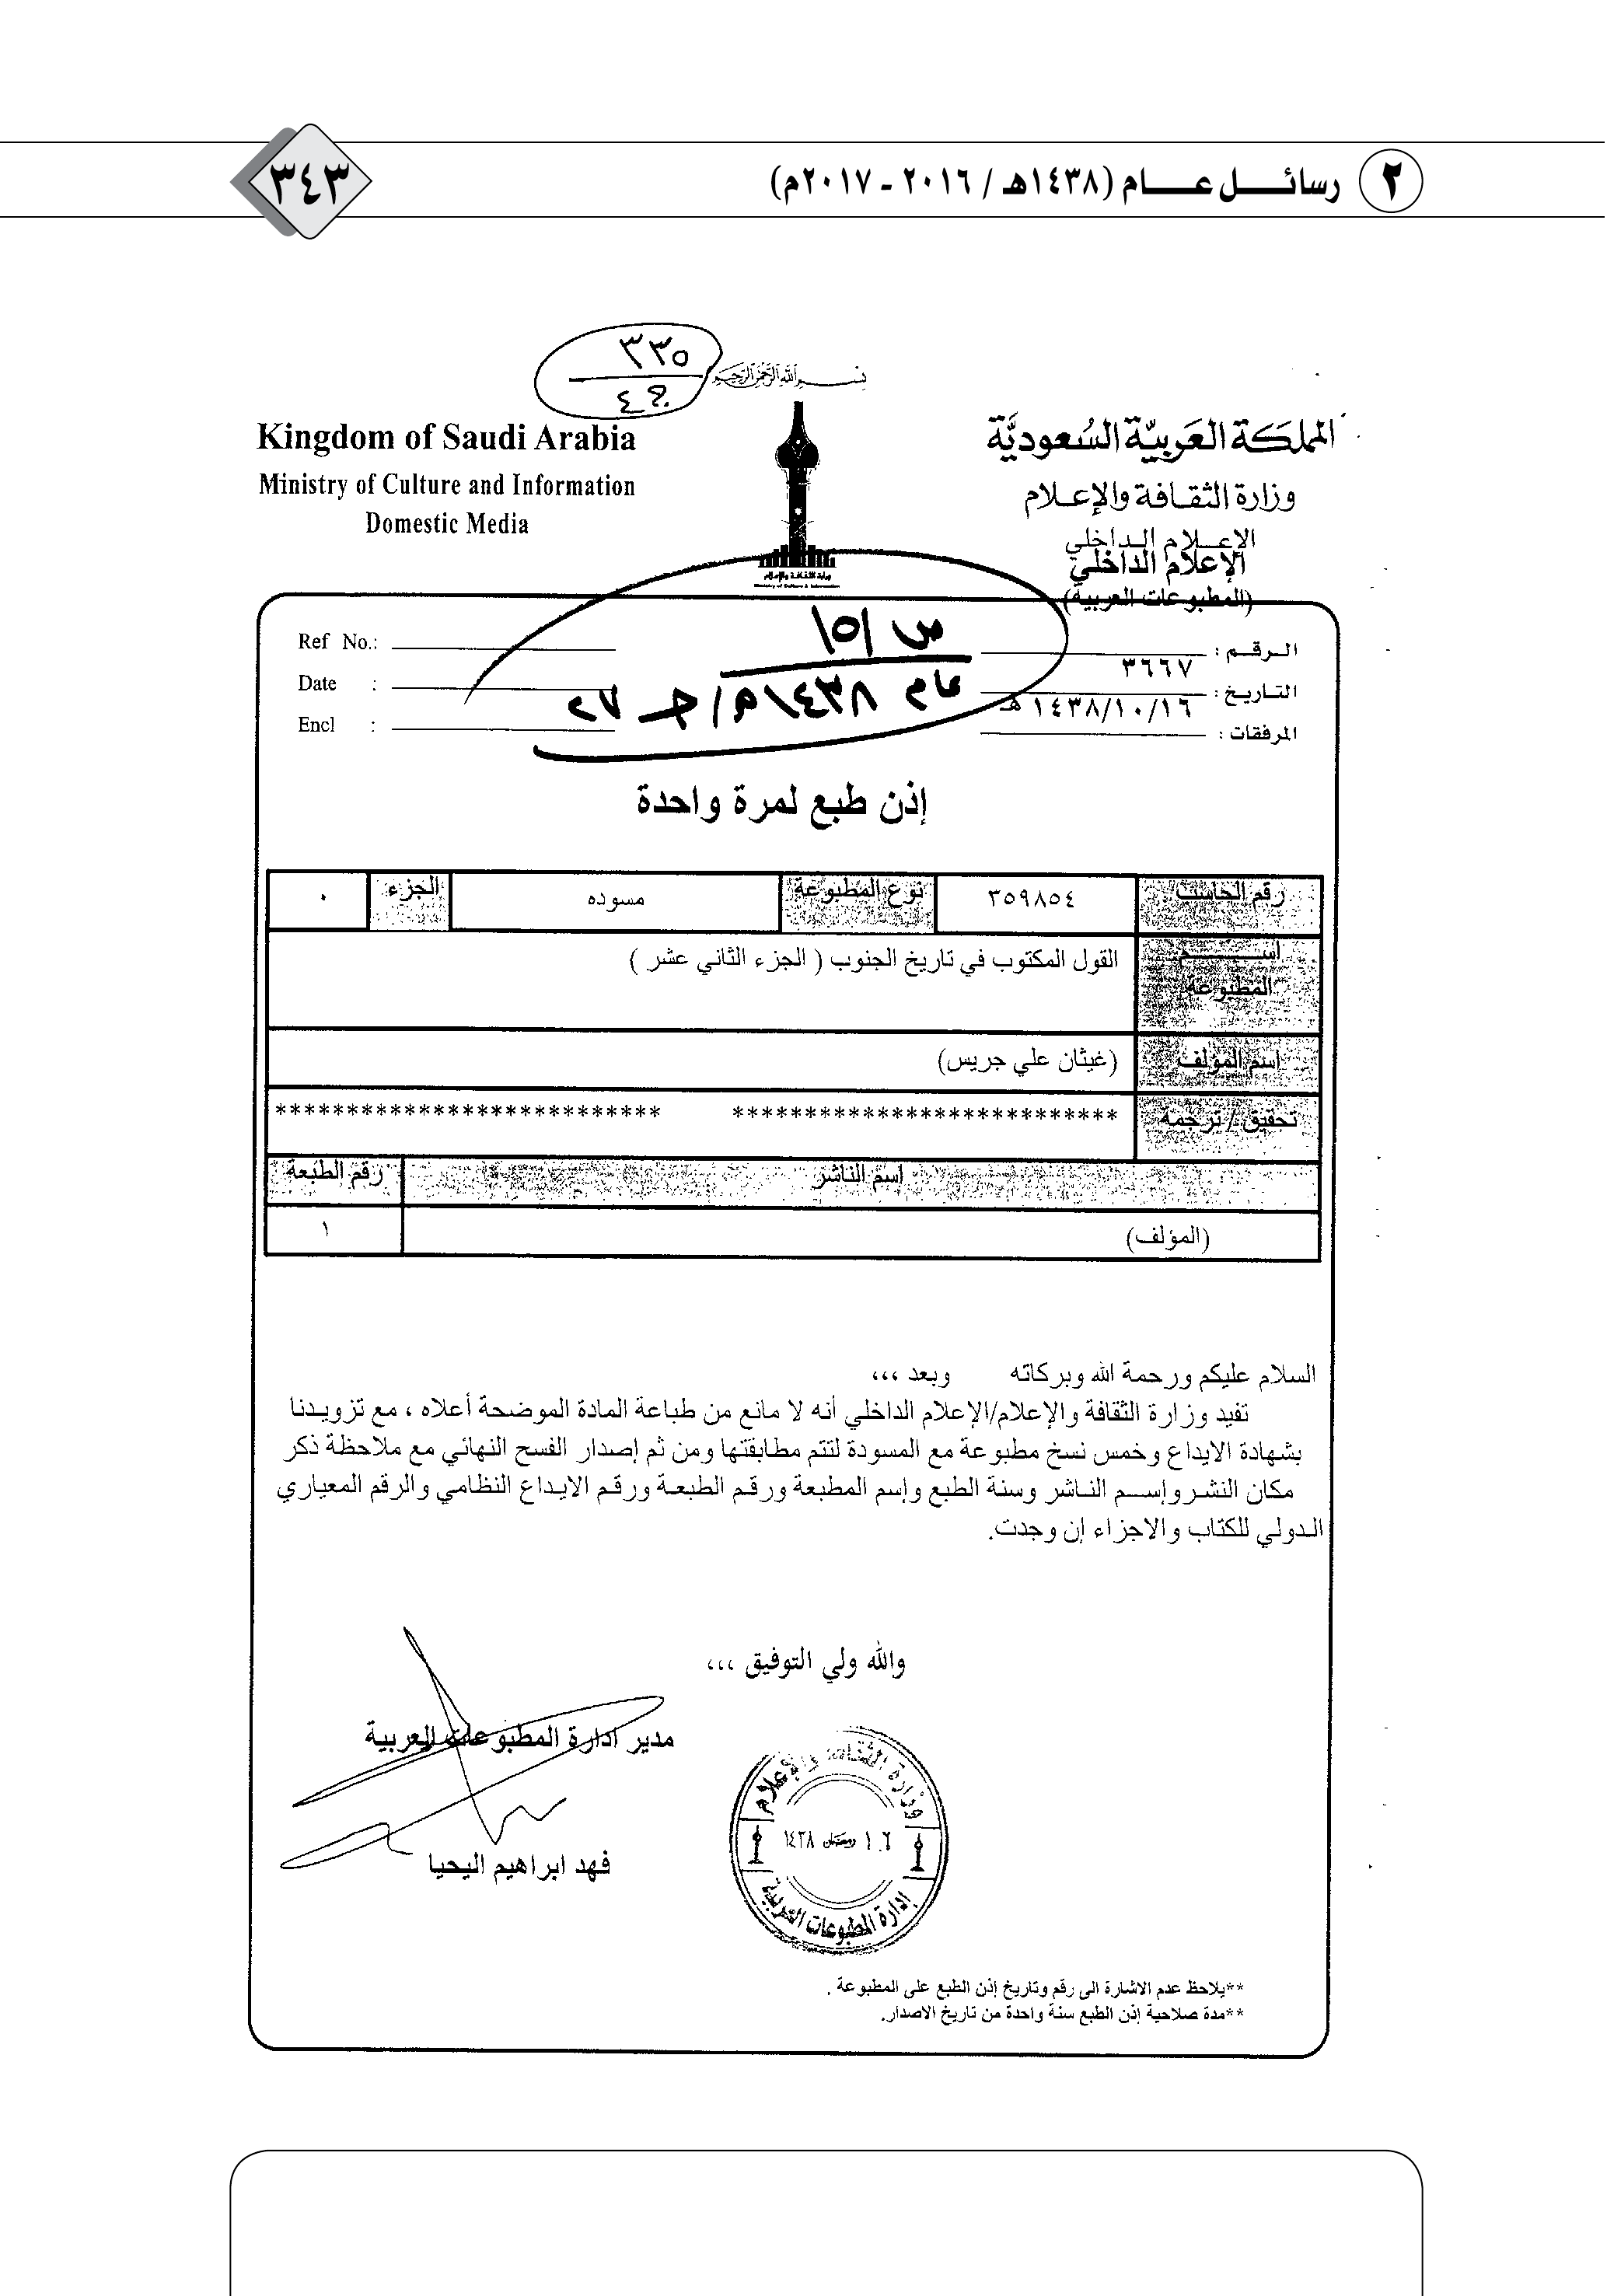 ٢ رسائل عام (١٤٣٨هـ / ٢٠١٦ ـ ٢٠١٧م)
٣٤٣
٣٣٥
ج ٤
بسم الله الرحمن الرحيم
المملكة العربية السعودية
وزارة الثقافة والإعلام
الإعلام الداخلي
الإعلام الداخلي
(المطبوعات العربية)
Kingdom of Saudi Arabia
Ministry of Culture and Information
Domestic Media
وزارة الثقافة والإعلام
Ministry of Culture & Information
الرقم : ٣٦٦٧
التاريخ : ١٤٣٨/١٠/١٦ هـ
المرفقات :
Ref No.:
Date :
Encl :
إذن طبع لمرة واحدة
رقم الحاسب ٣٥٩٨٥٤ نوع المطبوعة مسوده الجزء ٠
اســـم المطبوعة القول المكتوب في تاريخ الجنوب ( الجزء الثاني عشر )
اسم المؤلف (غيثان علي جريس)
تحقيق / ترجمة *************************** ***************************
اسم الناشر رقم الطبعة
(المؤلف) ١
السلام عليكم ورحمة الله وبركاته وبعد ،،،
تفيد وزارة الثقافة والإعلام/الإعلام الداخلي أنه لا مانع من طباعة المادة الموضحة أعلاه ، مع تزويدنا
بشهادة الايداع وخمس نسخ مطبوعة مع المسودة لتتم مطابقتها ومن ثم إصدار الفسح النهائي مع ملاحظة ذكر
مكان النشر وإسم الناشر وسنة الطبع وإسم المطبعة ورقم الطبعة ورقم الايداع النظامي والرقم المعياري
الدولي للكتاب والاجزاء إن وجدت.
والله ولي التوفيق ،،،
مدير ادارة المطبوعات العربية
فهد ابراهيم اليحيا
وزارة الثقافة والإعلام
رمضان ١٤٣٨
إدارة المطبوعات العربية
**يلاحظ عدم الاشارة الى رقم وتاريخ إذن الطبع على المطبوعة .
**مدة صلاحية إذن الطبع سنة واحدة من تاريخ الاصدار.